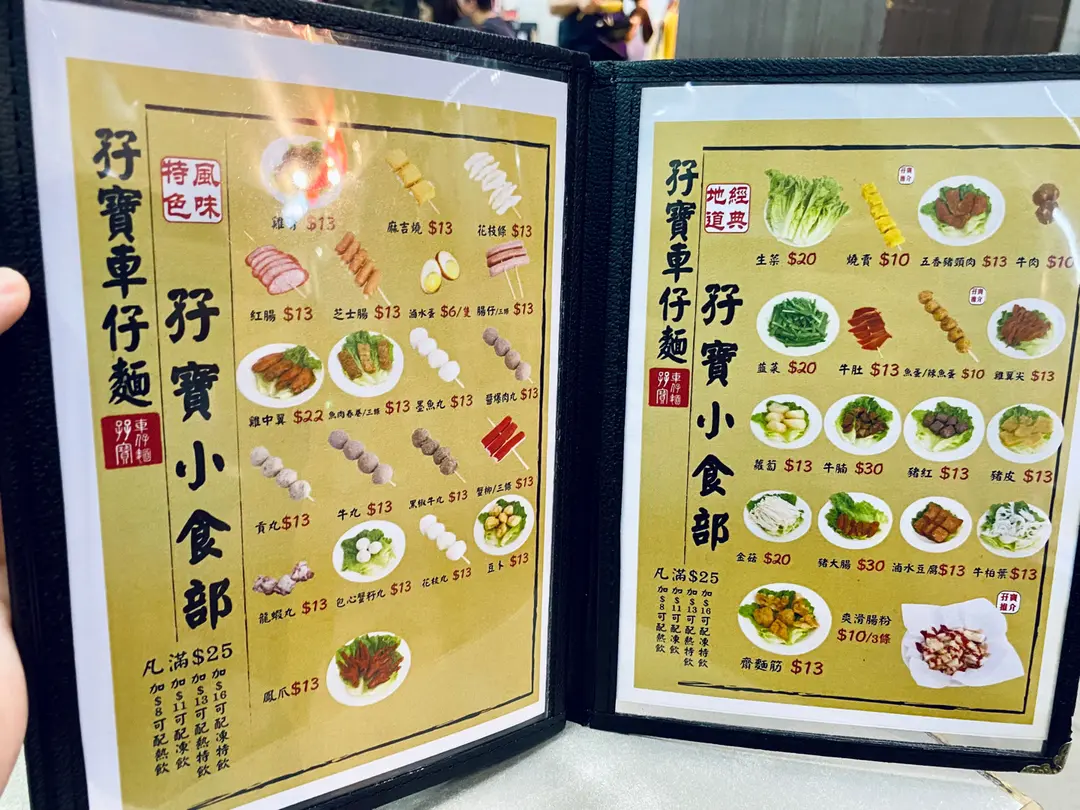 孖寶車仔麵
孖寶
車仔麵
風味
特色
孖寶小食部
凡滿$25
加$8可配熱飲
加$11可配凍飲
加$13可配熱特飲
加$16可配凍特飲
$13
麻吉燒 $13
花枝條 $13
紅腸 $13
芝士腸 $13
滷水蛋 $6/隻
腸仔/三條 $13
雞中翼 $22
魚肉春卷/三條 $13
墨魚丸 $13
醬爆肉丸 $13
貢丸 $13
牛丸 $13
黑椒牛丸 $13
蟹柳/三條 $13
龍蝦丸 $13
包心蟹籽丸 $13
花枝丸 $13
豆卜 $13
鳳爪 $13
孖寶車仔麵
孖寶
車仔麵
經典
地道
孖寶小食部
凡滿$25
加$8可配熱飲
加$11可配凍飲
加$13可配熱特飲
加$16可配凍特飲
孖寶
推介
生菜 $20
燒賣 $10
五香豬頭肉 $13
牛肉 $10
孖寶
推介
韮菜 $20
牛肚 $13
魚蛋/辣魚蛋 $10
雞翼尖 $13
蘿蔔 $13
牛腩 $30
豬紅 $13
豬皮 $13
金菇 $20
豬大腸 $30
滷水豆腐 $13
牛柏葉 $13
齋麵筋 $13
爽滑腸粉
$10/3條
孖寶
推介